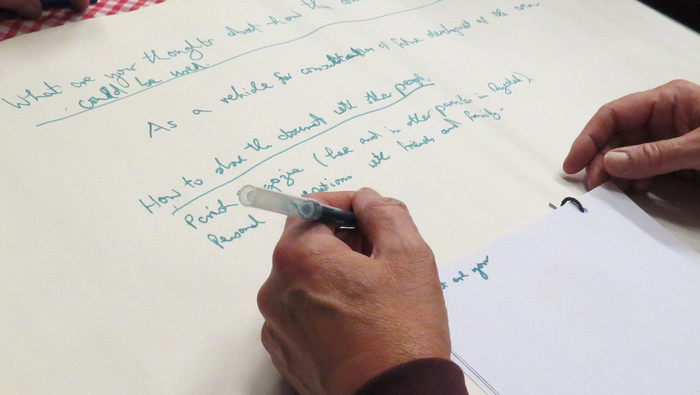 What are your thoughts about how the
could be used.
As a vehicle for consultation of future development of the area
How to share the document with the people.
Parish (here and in other parishes in
Personal with friends and family.
are your